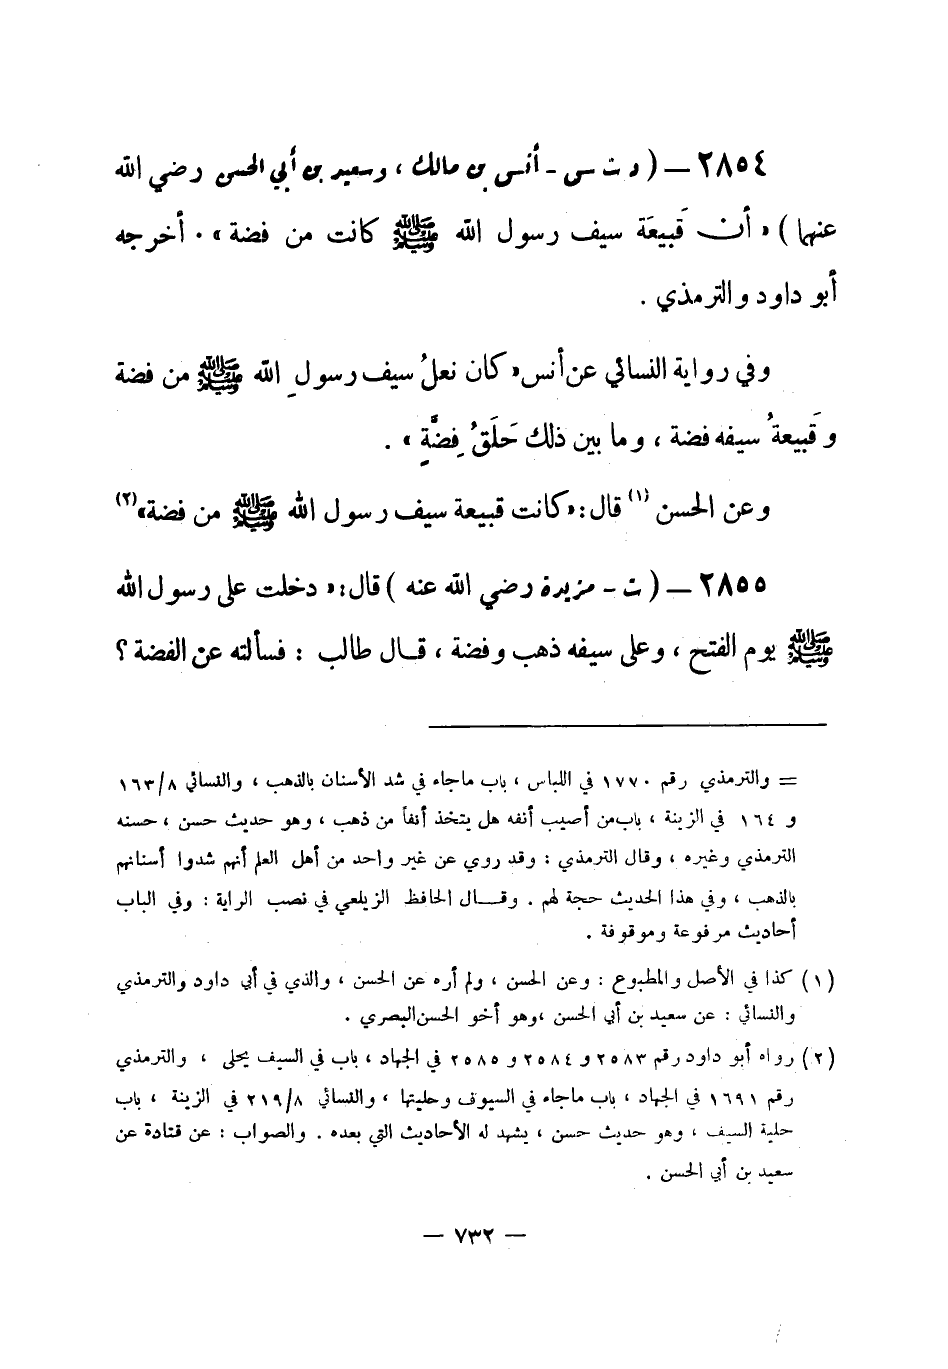 ٢٨٥٤ — ( د ت س - أنس بن مالك ، وسعيد بن أبي الحسن رضي الله
عنهما ) « أن قَبيعَة سيف رسول الله ﷺ كانت من فضة » . أخرجه
أبو داود والترمذي .
وفي رواية النسائي عن أنس « كان نعلُ سيف رسولِ الله ﷺ من فضة
وقَبيعةُ سيفه فضة ، وما بين ذلك حَلَقُ فِضَّةٍ » .
وعن الحسن (١) قال : « كانت قبيعة سيف رسول الله ﷺ من فضة » (٢)
٢٨٥٥ — ( ت - مزيدة رضي الله عنه ) قال : « دخلت على رسول الله
ﷺ يوم الفتح ، وعلى سيفه ذهب وفضة ، قال طالب : فسألته عن الفضة ؟
= والترمذي رقم ١٧٧٠ في اللباس ، باب ماجاء في شد الأسنان بالذهب ، والنسائي ١٦٣/٨
و ١٦٤ في الزينة ، باب من أصيب أنفه هل يتخذ أنفاً من ذهب ، وهو حديث حسن ، حسنه
الترمذي وغيره ، وقال الترمذي : وقد روي عن غير واحد من أهل العلم أنهم شدوا أسنانهم
بالذهب ، وفي هذا الحديث حجة لهم . وقال الحافظ الزيلعي في نصب الراية : وفي الباب
أحاديث مرفوعة وموقوفة .
(١) كذا في الأصل والمطبوع : وعن الحسن ، ولم أره عن الحسن ، والذي في أبي داود والترمذي
والنسائي : عن سعيد بن أبي الحسن ، وهو أخو الحسن البصري .
(٢) رواه أبو داود رقم ٢٥٨٣ و ٢٥٨٤ و ٢٥٨٥ في الجهاد ، باب في السيف يحلى ، والترمذي
رقم ١٦٩١ في الجهاد ، باب ماجاء في السيوف وحليتها ، والنسائي ٢١٩/٨ في الزينة ، باب
حلية السيف ، وهو حديث حسن ، يشهد له الأحاديث التي بعده . والصواب : عن قتادة عن
سعيد بن أبي الحسن .
— ٧٣٢ —